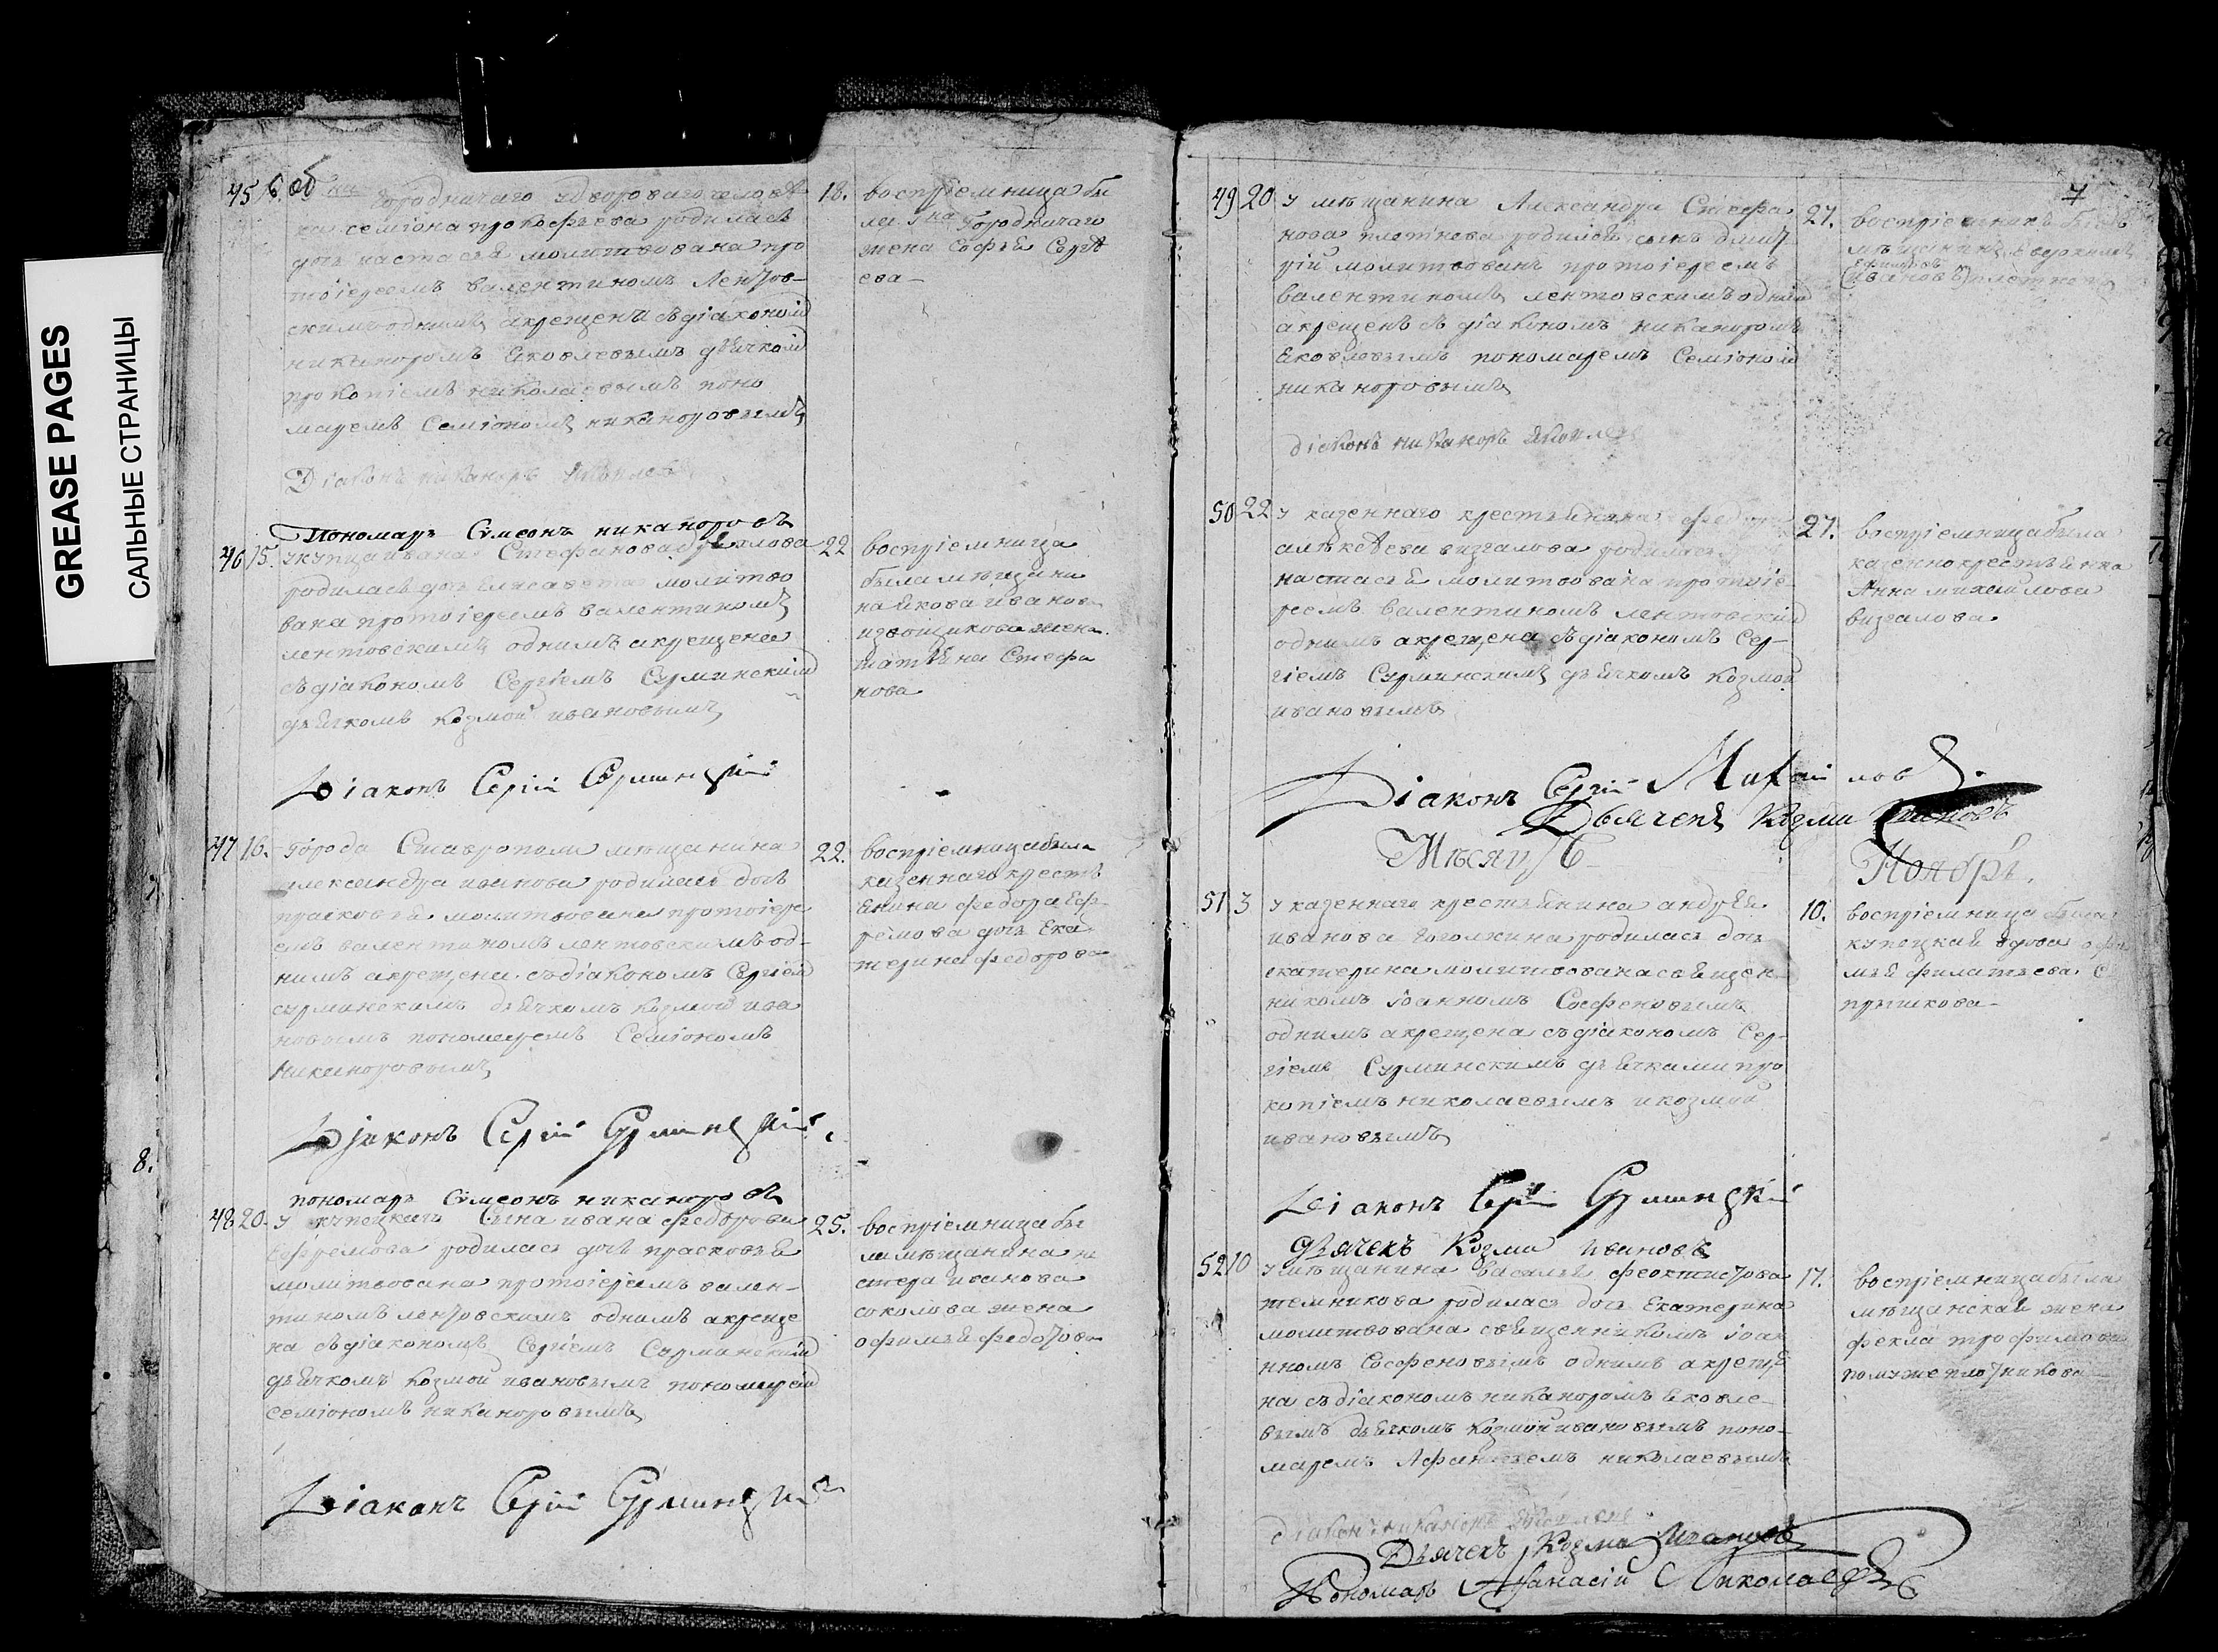 GREASE PAGES
САЛЬНЫЕ СТРАНИЦЫ
8.
45 6 об городничаго удвороваго человѣ
ка семіона прокофьева родилась
дочь настасья молитвована про
тоіереемъ валентиномъ Лентов-
скимъ однимъ акрещена съ діакономъ
никаноромъ яковлевымъ дьячкомъ
прокопіемъ николаевымъ поно
маремъ Семіономъ никаноровымъ
18. воспріемница бы
ла городничаго
жена Софья Сергѣ
ева
Діаконъ никаноръ яковлевъ
Пономарь Симеонъ никаноровъ
46 15. у купца ивана Стефанова
родилась дочь елисавета молитво
вана протоіереемъ валентиномъ
лентовскимъ однимъ акрещена
съ діакономъ Сергіемъ Сурминскимъ
дьячкомъ козмой ивановымъ
22 воспріемница
была мѣщани
на якова иванова
извощикова жена
татьяна Стефа
нова
Діаконъ Сергій Сурминскій
47 16. города Ставрополя мѣщанина
александра иванова родилась дочь
прасковья молитвована протоіере
емъ валентиномъ лентовскимъ од-
нимъ акрещена съ діакономъ Сергіемъ
сурминскимъ дьячкомъ козмой ива
новымъ пономаремъ Семіономъ
никаноровымъ
22. воспріемница была
казеннаго кресть
янина федора Еф-
ремова дочь Ека
терина федорова
Діаконъ Сергій Сурминскій
пономарь Симеонъ никаноровъ
48 20. у купецкаго Сына ивана федорова
ефремова родилась дочь прасковья
молитвована протоіереемъ вален-
тиномъ лентовскимъ однимъ акреще
на съ діакономъ Сергіемъ Сурминскимъ
дьячкомъ козмой ивановымъ пономаремъ
семіономъ никаноровымъ
25. воспріемница бы
ла мѣщанина не
стера иванова
соколова жена
офимья федотова
Діаконъ Сергій Сурминскій
7
49 20 у мѣщанина Александра Стефа
нова плотнева родился сынъ дмит
рій молитвованъ протоіереемъ
валентиномъ лентовскимъ однимъ
акрещенъ съ діакономъ никаноромъ
яковлевымъ пономаремъ Семіономъ
никаноровымъ
27. воспріемникъ былъ
мѣщанинъ
(ивановъ)
діаконъ никаноръ яковлевъ
50 22 у казеннаго крестьянина федора
алѣксѣева визгалова родилась
настасья молитвована протоіе
реемъ валентиномъ лентовскимъ
однимъ акрещена съ діакономъ Сер-
гіемъ Сурминскимъ дьячкомъ козмой
ивановымъ
27. воспріемница была
казеннокрестьянка
Анна михайлова
визгалова
Діаконъ Сергій Михайловъ
Дьячекъ Козма Ивановъ
Мѣсяцъ Ноябрь.
51 3 у казеннаго крестьянина андрея
иванова родилась дочь
екатерина молитвована священ
никомъ іоанномъ Сосфеновымъ
однимъ акрещена съ діакономъ Сер-
гіемъ Сурминскимъ дьячками про
копіемъ николаевымъ и козмой
ивановымъ
10. воспріемница была
купецкая вдова офи
мья филатьева
прышкова
Діаконъ Сергій Сурминскій
дьячекъ Козма ивановъ
52 10 у мѣщанина василья феоктистова
темникова родилась дочь Екатерина
молитвована священникомъ іоа
нномъ Сосфеновымъ однимъ акреще
на съ діакономъ никаноромъ яковле-
вымъ дьячкомъ козмой ивановымъ поно-
маремъ Афанасьемъ николаевымъ
17. воспріемница была
мѣщанская жена
фекла трофимова
помуже плотникова
діаконъ никаноръ яковлевъ
Дьячекъ Козма Ивановъ
Пономарь Афанасій Николаевъ